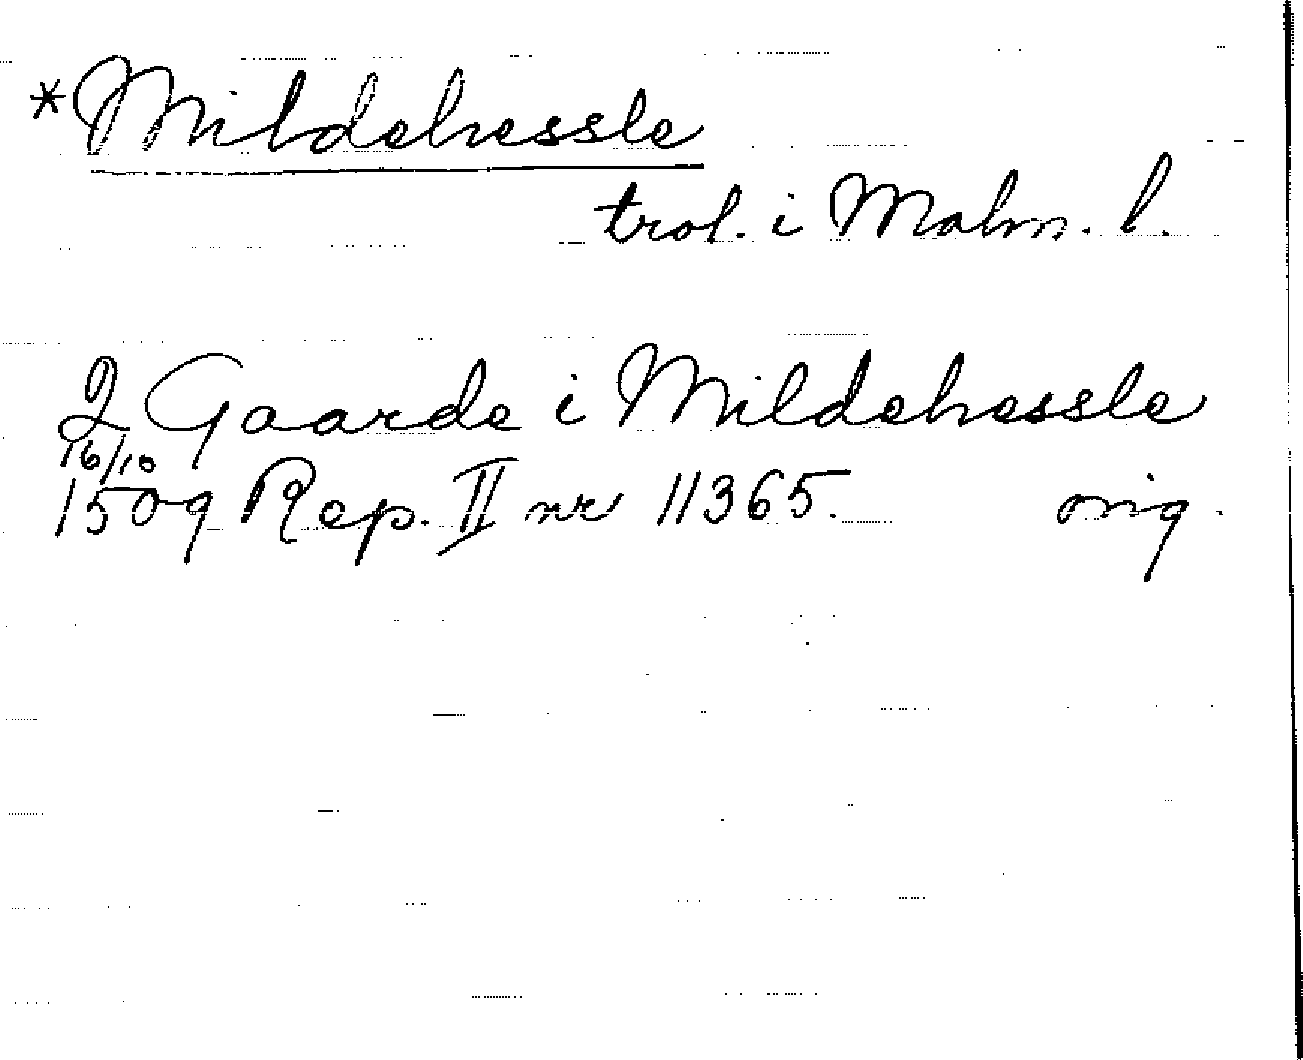 *Mildehessle
trol. i Malm. l.
2 Gaarde i Mildehessle
16/10
1509 Rep. II nr 11365. orig.